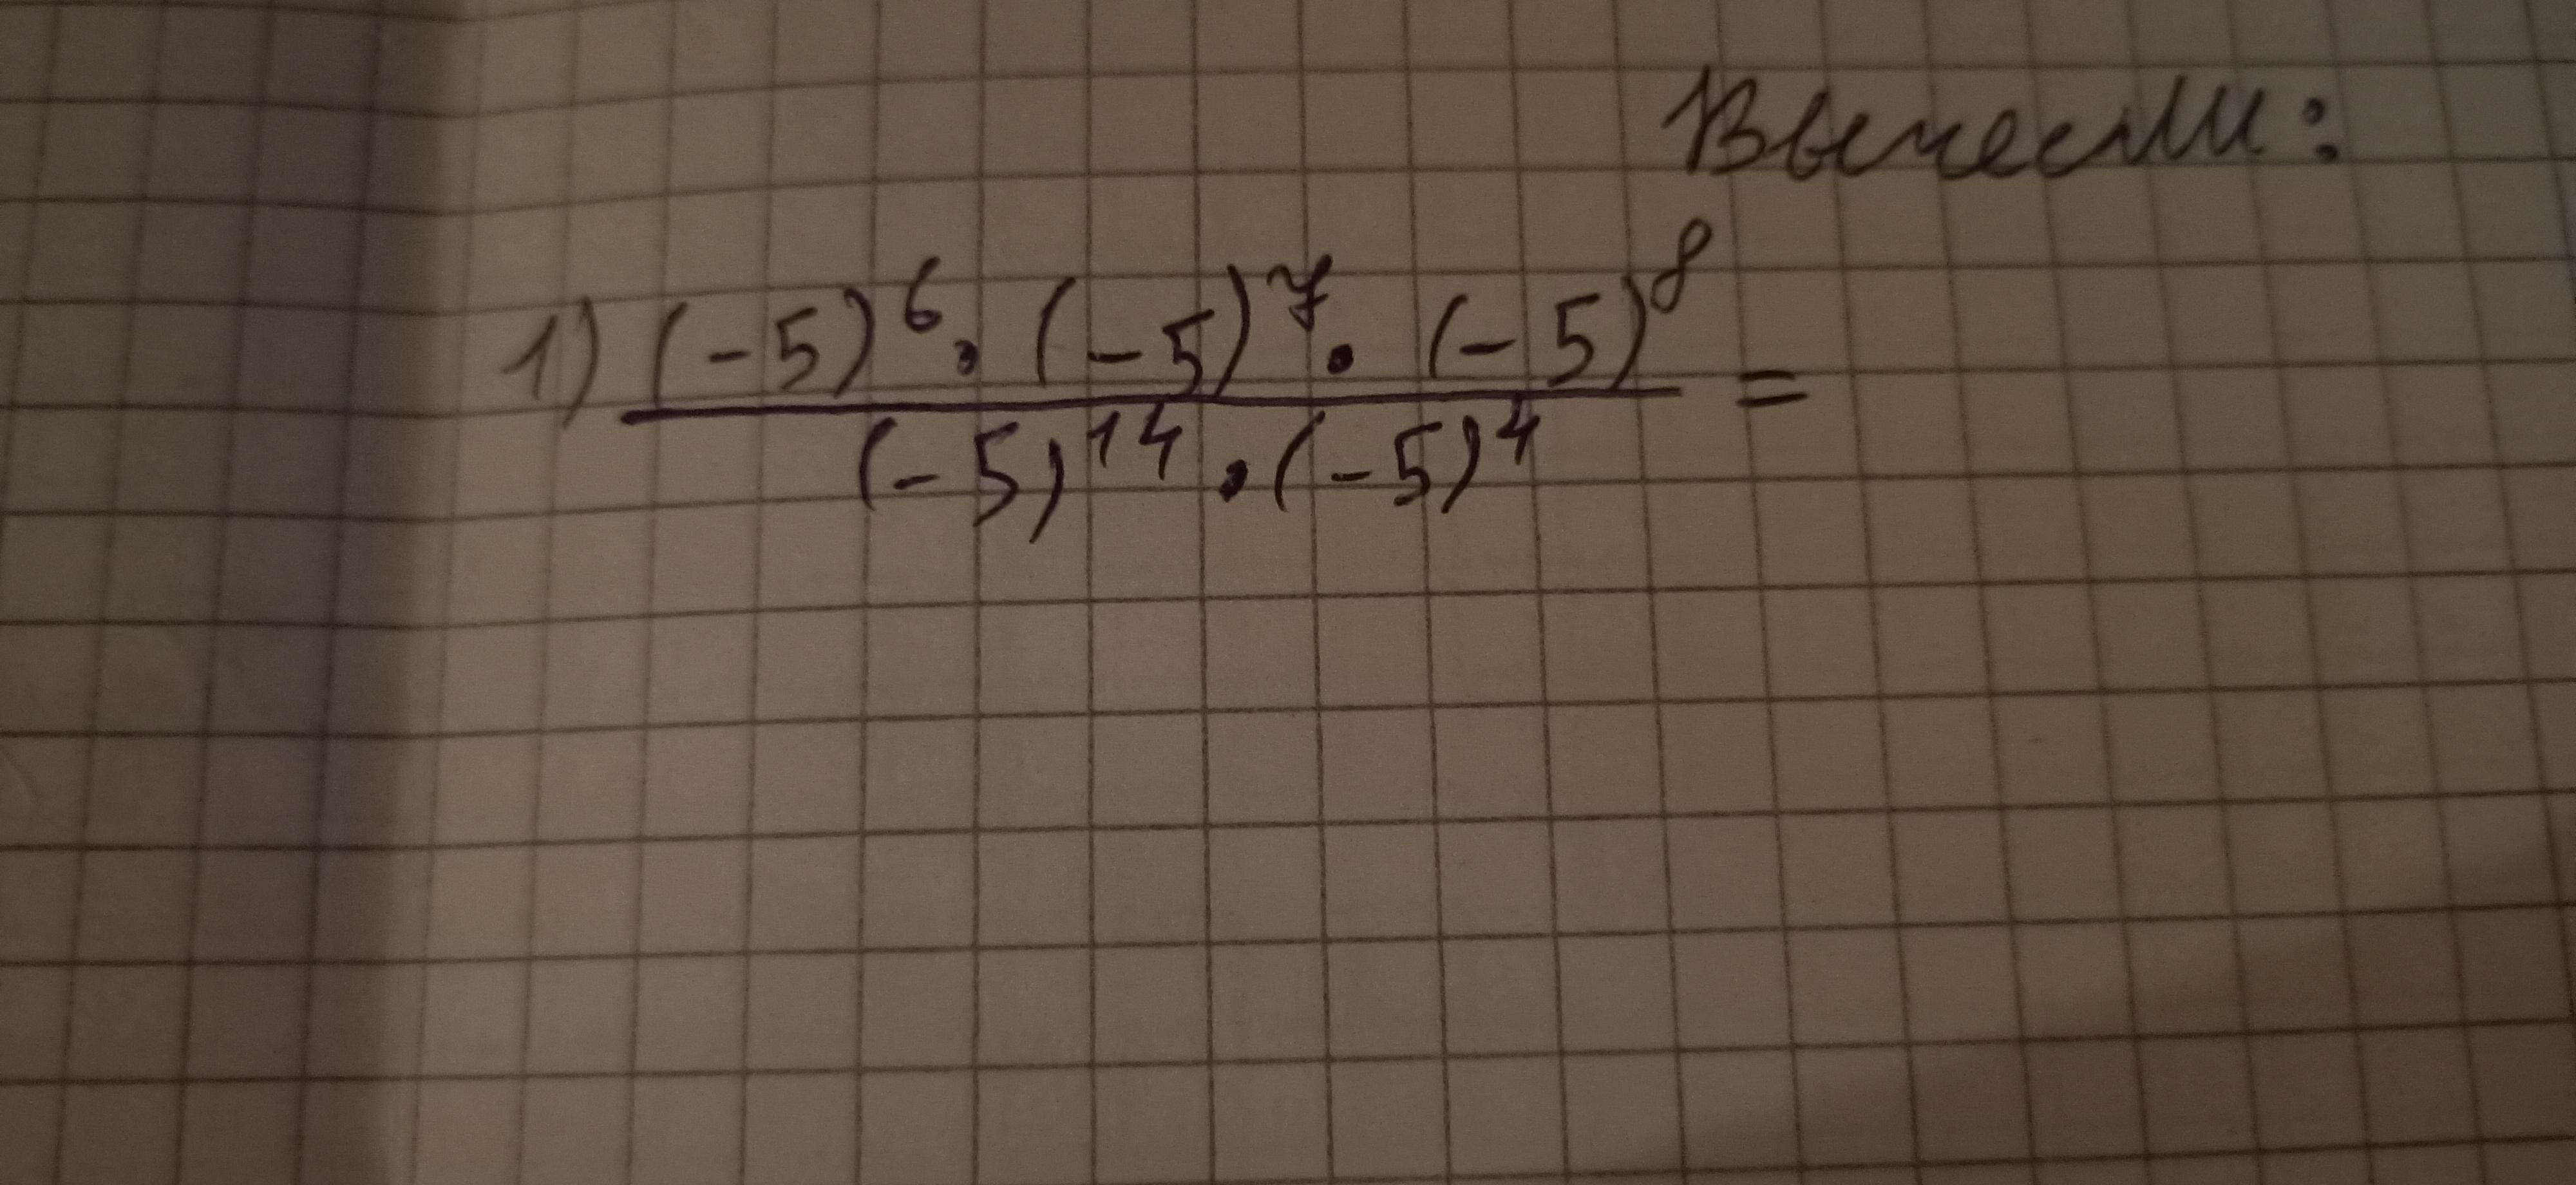 Вычисли:
1) (-5)⁶ · (-5)⁷ · (-5)⁸ =
(-5)¹⁴ · (-5)⁴